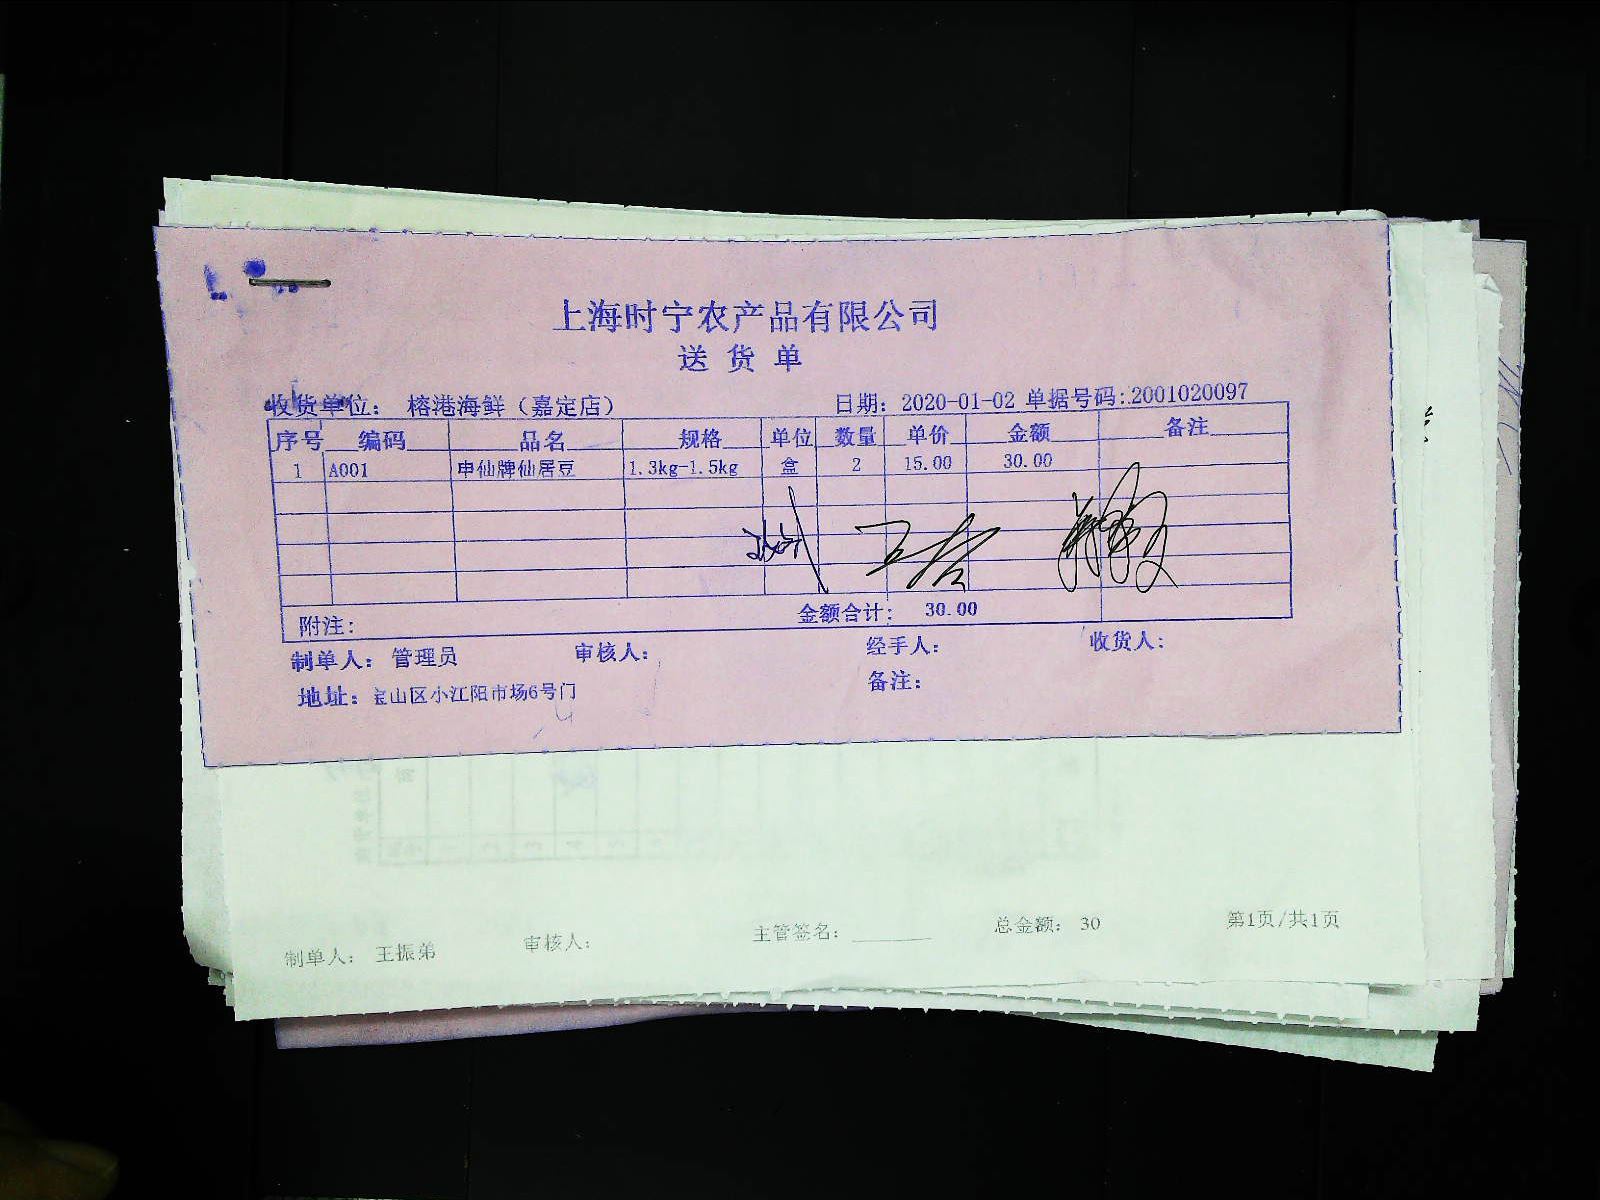 上海时宁农产品有限公司
送货单
收货单位： 榕港海鲜（嘉定店） 日期：2020-01-02 单据号码:2001020097
序号 编码 品名 规格 单位 数量 单价 金额 备注
1 A001 申仙牌仙居豆 1.3kg-1.5kg 盒 2 15.00 30.00
附注: 金额合计: 30.00
制单人：管理员 审核人: 经手人: 收货人:
地址：宝山区小江阳市场6号门 备注:
制单人： 王振弟 审核人: 主管签名: 总金额: 30 第1页/共1页